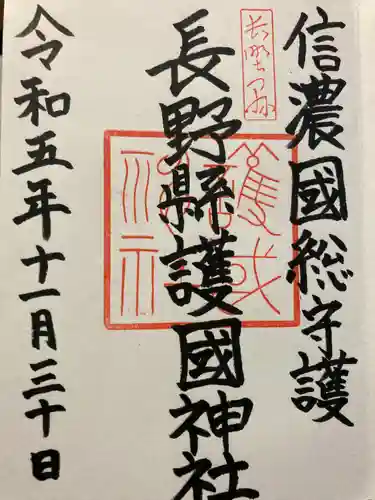 信濃國総守護
長野縣
長野縣護國神社
令和五年十一月三十日